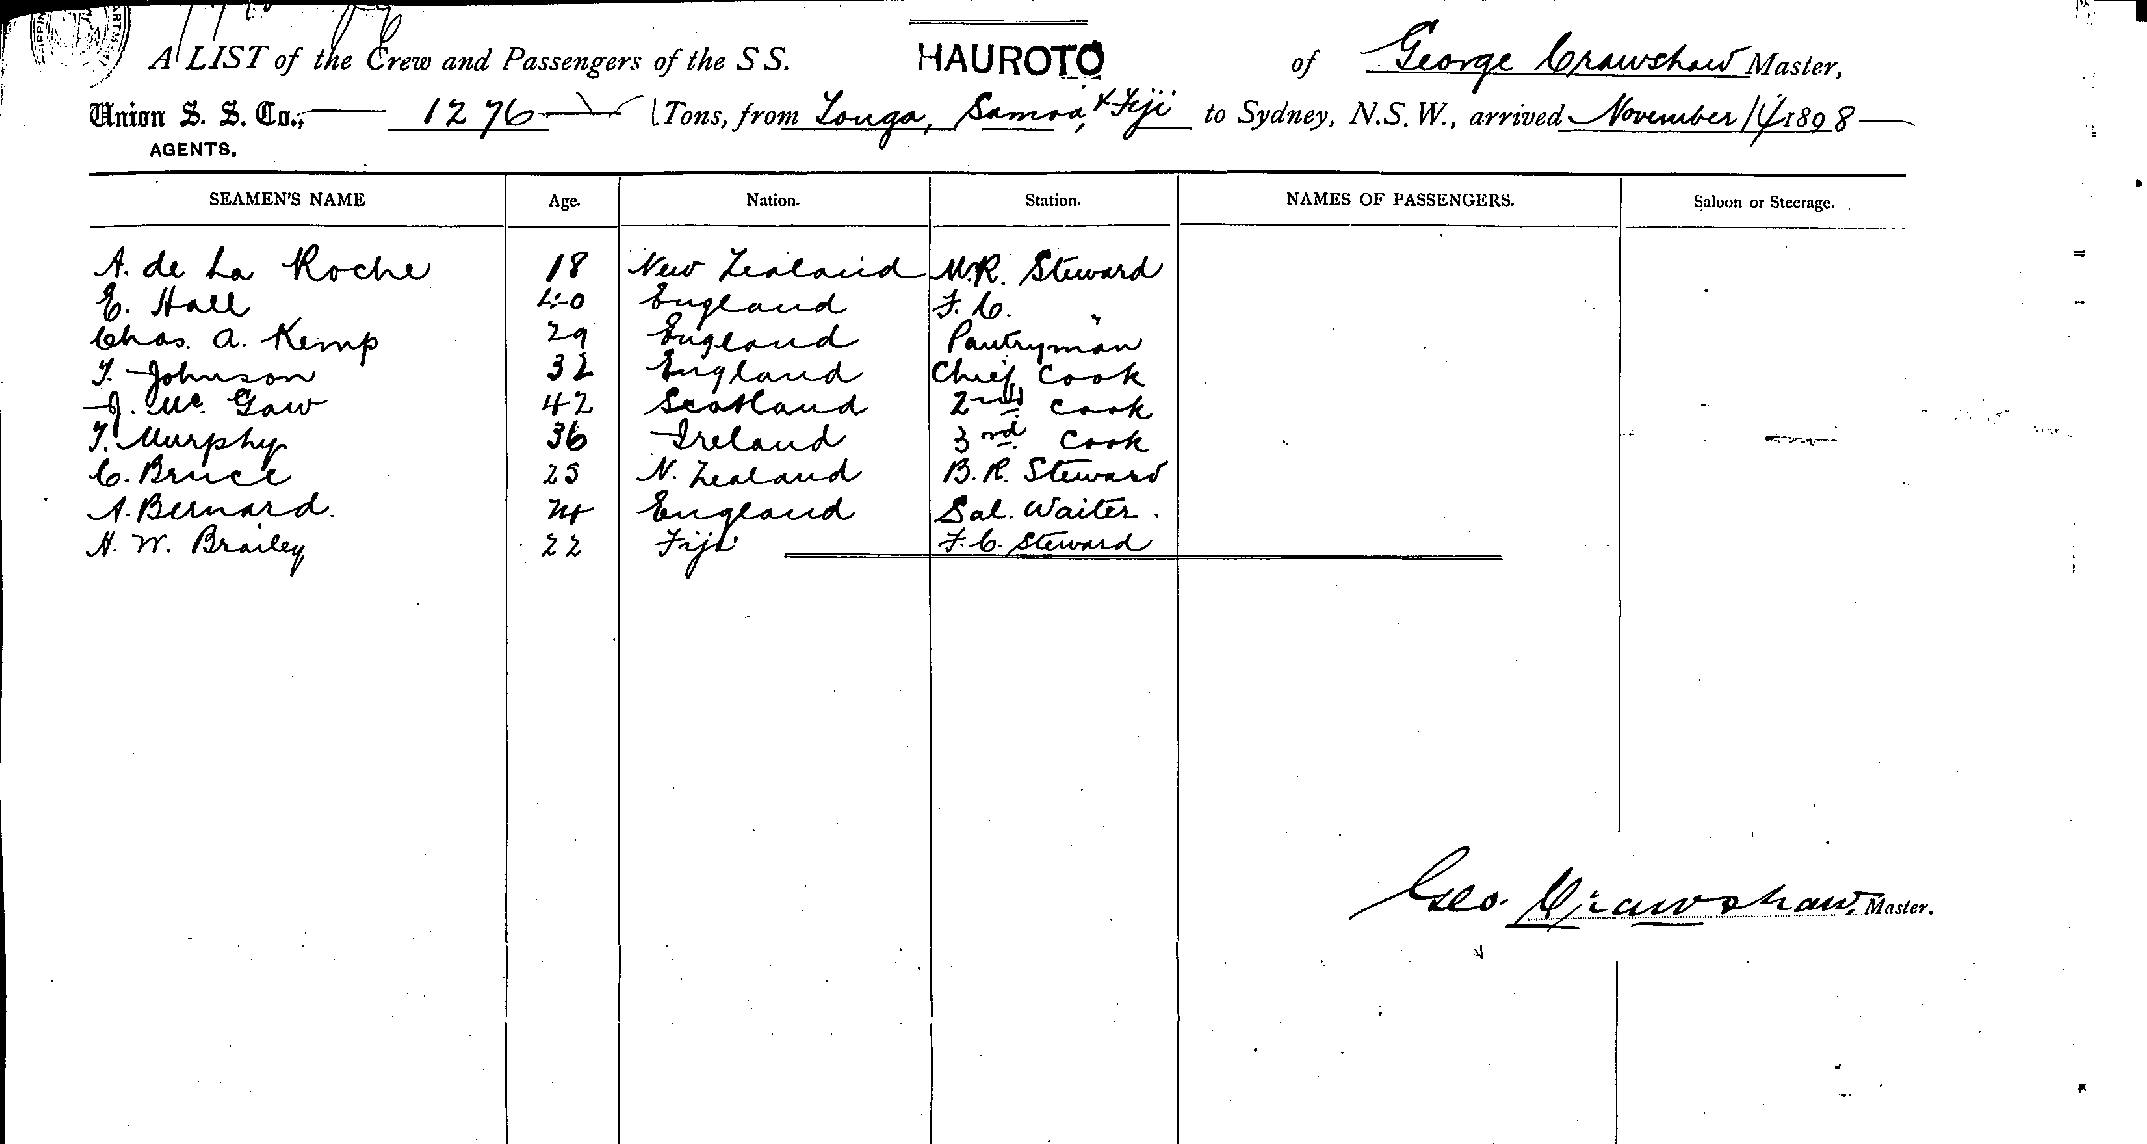 A LIST of the Crew and Passengers of the S S. HAUROTO of George Crawshaw Master,
Union S. S. Co., 1276 Tons, from Tonga, Samoa, & Fiji to Sydney, N.S.W., arrived November 14 1898
AGENTS,
SEAMEN'S NAME Age. Nation. Station. NAMES OF PASSENGERS. Saloon or Steerage.
A. de La Roche 18 New Zealand M.R. Steward
E. Hall 40 England F. C. "
Chas. A. Kemp 29 England Pantryman
T. Johnson 32 England Chief Cook
J. Mc Gaw 42 Scotland 2nd Cook
T. Murphy 36 Ireland 3rd Cook
C. Bruce 25 N. Zealand B. R. Steward
A. Bernard. 24 England Sal. Waiter.
H. W. Brailey 22 Fiji F. C. Steward
Geo. Crawshaw, Master.